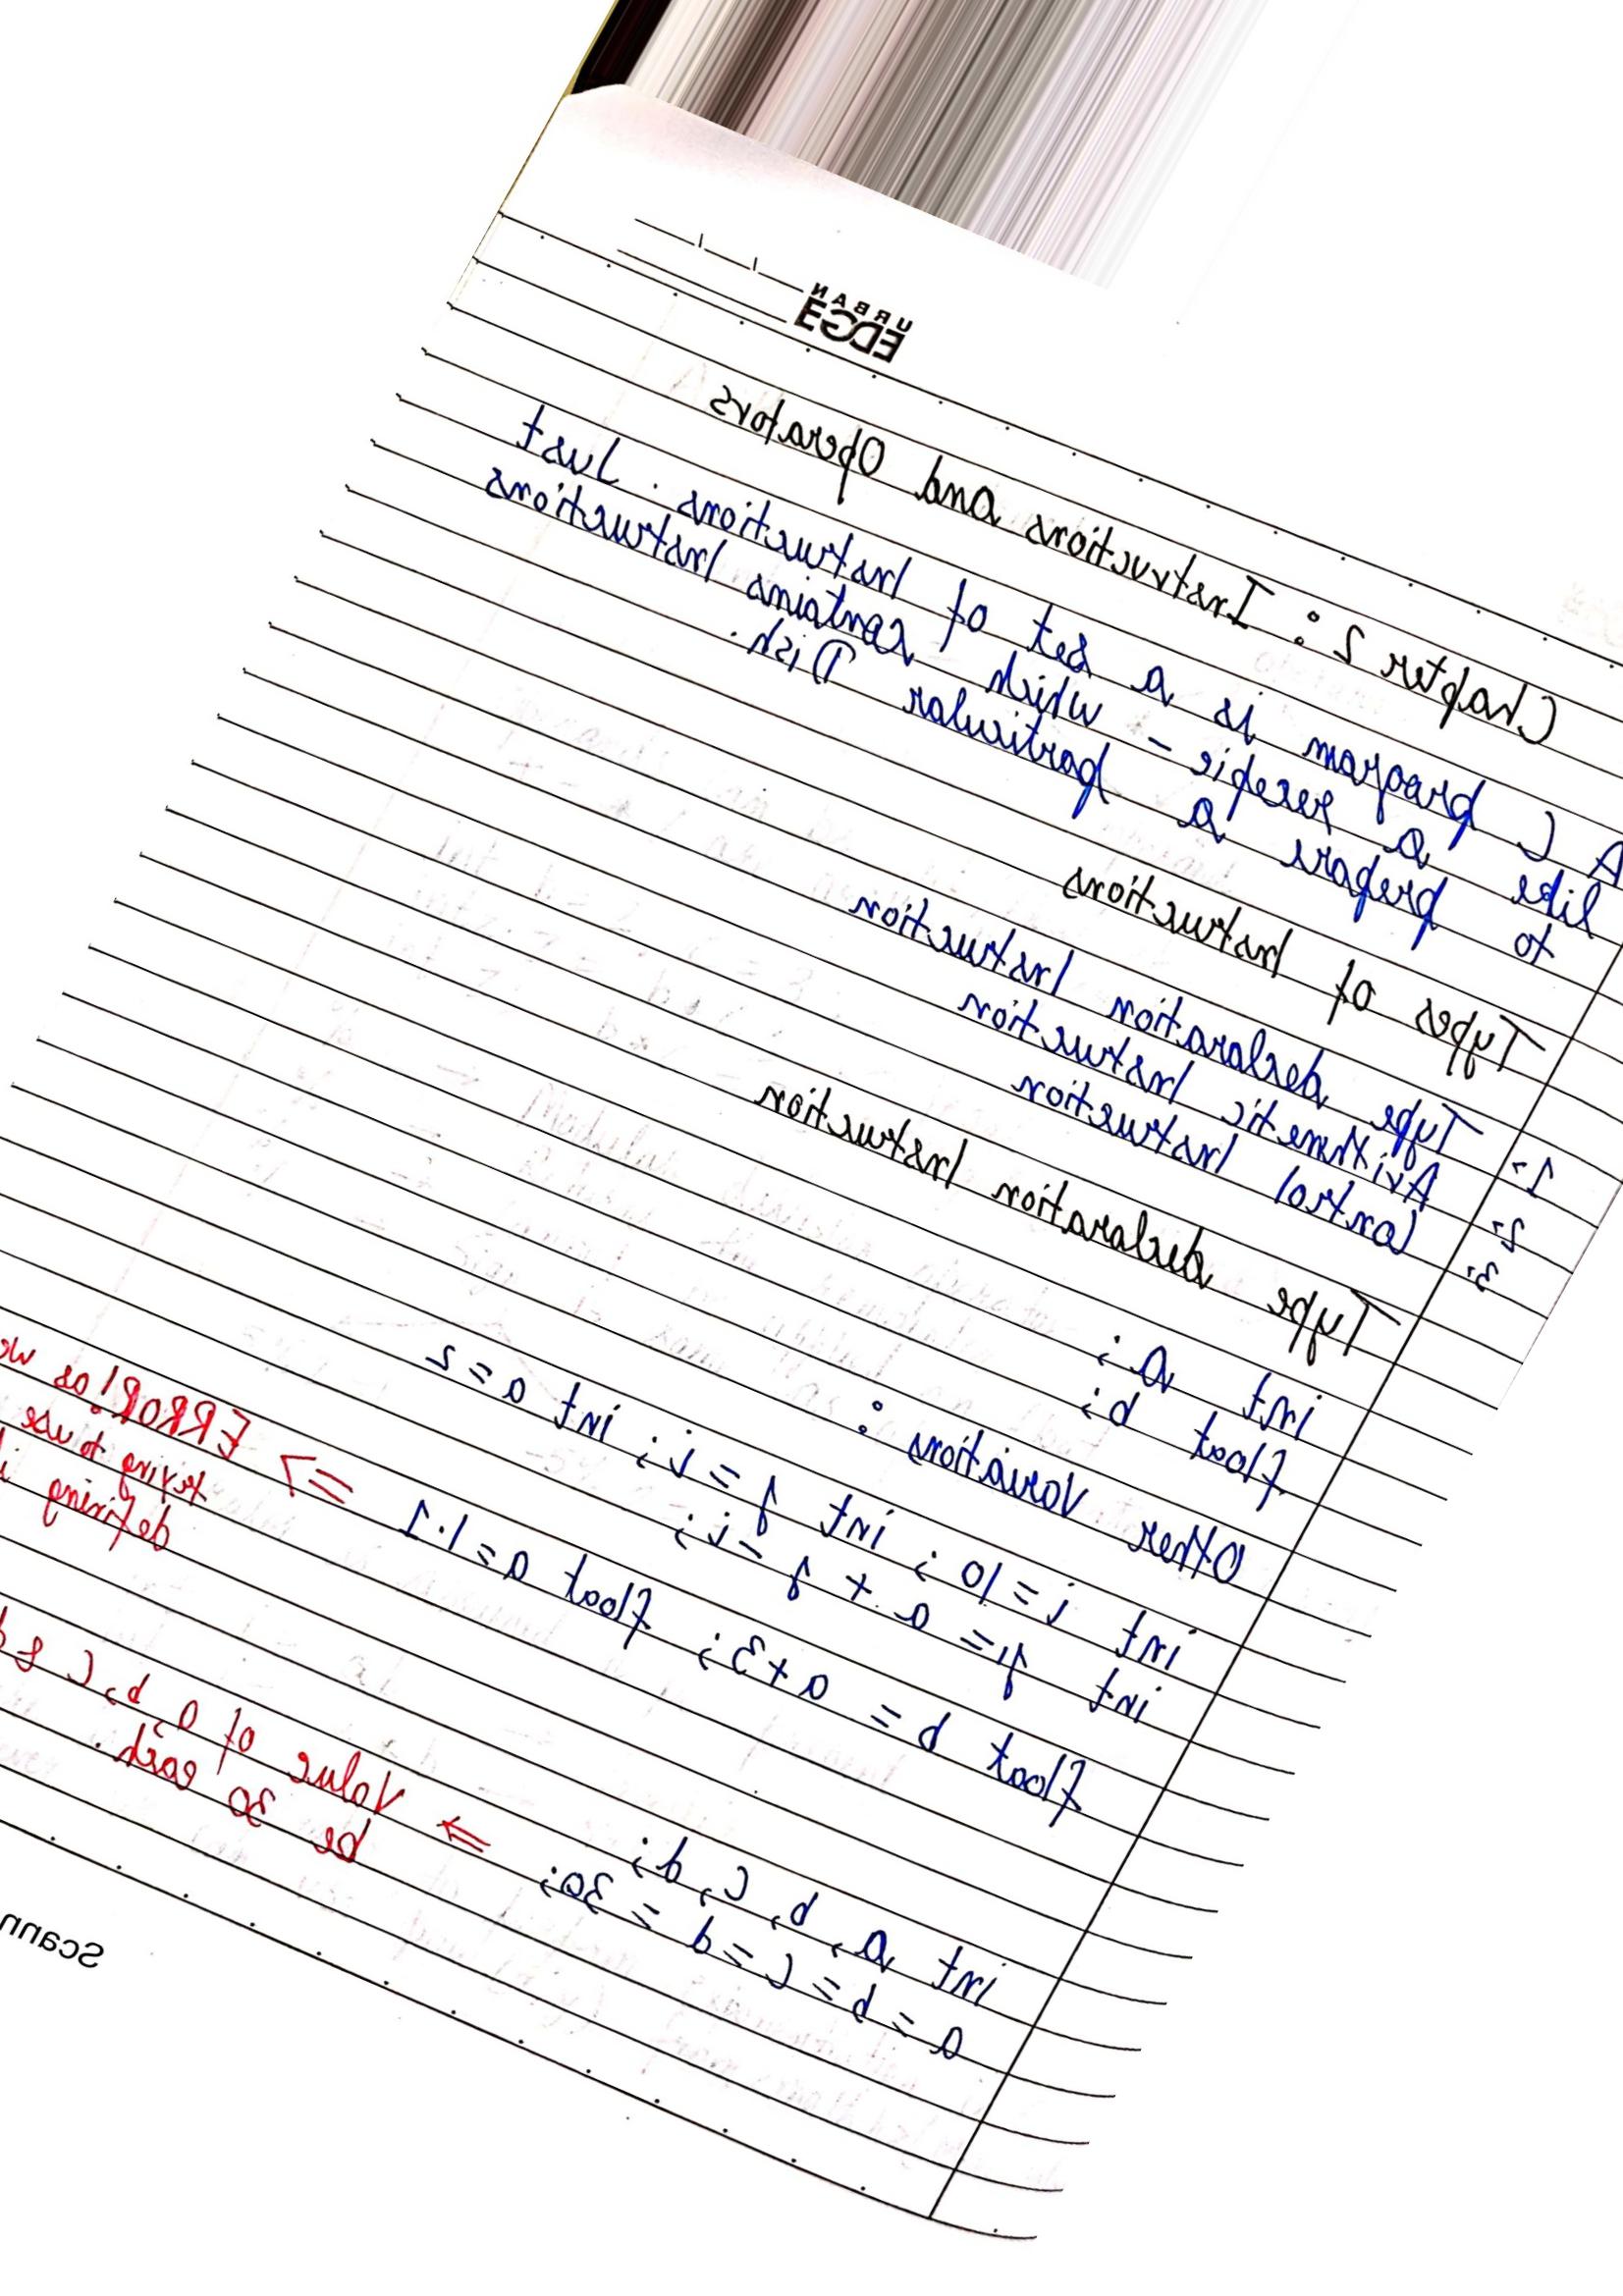 URBAN
EDGE
Chapter 2: Instructions and Operators
A C program is a set of Instructions. Just
like a recepie - which contains Instructions
to prepare a particular Dish.
Types of Instructions
1. Type declaration Instruction
2. Arithmetic Instruction
3. Control Instruction
Type declaration Instruction
int a;
float b;
Other Variations:
int i = 10; int j = i; int a = 2
int j1 = a + j - i;
float b = a+3; float a = 1.1 => ERROR! as we
trying to use
defining
int a, b, c, d;
a = b = c = d = 30; => Value of a, b, c & d
be 30 each.
Scann